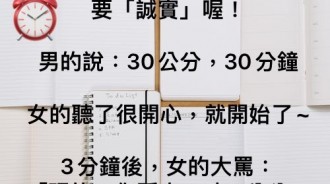 要「誠實」喔！
男的說：30公分，30分鐘
女的聽了很開心，就開始了~
3分鐘後，女的大罵：